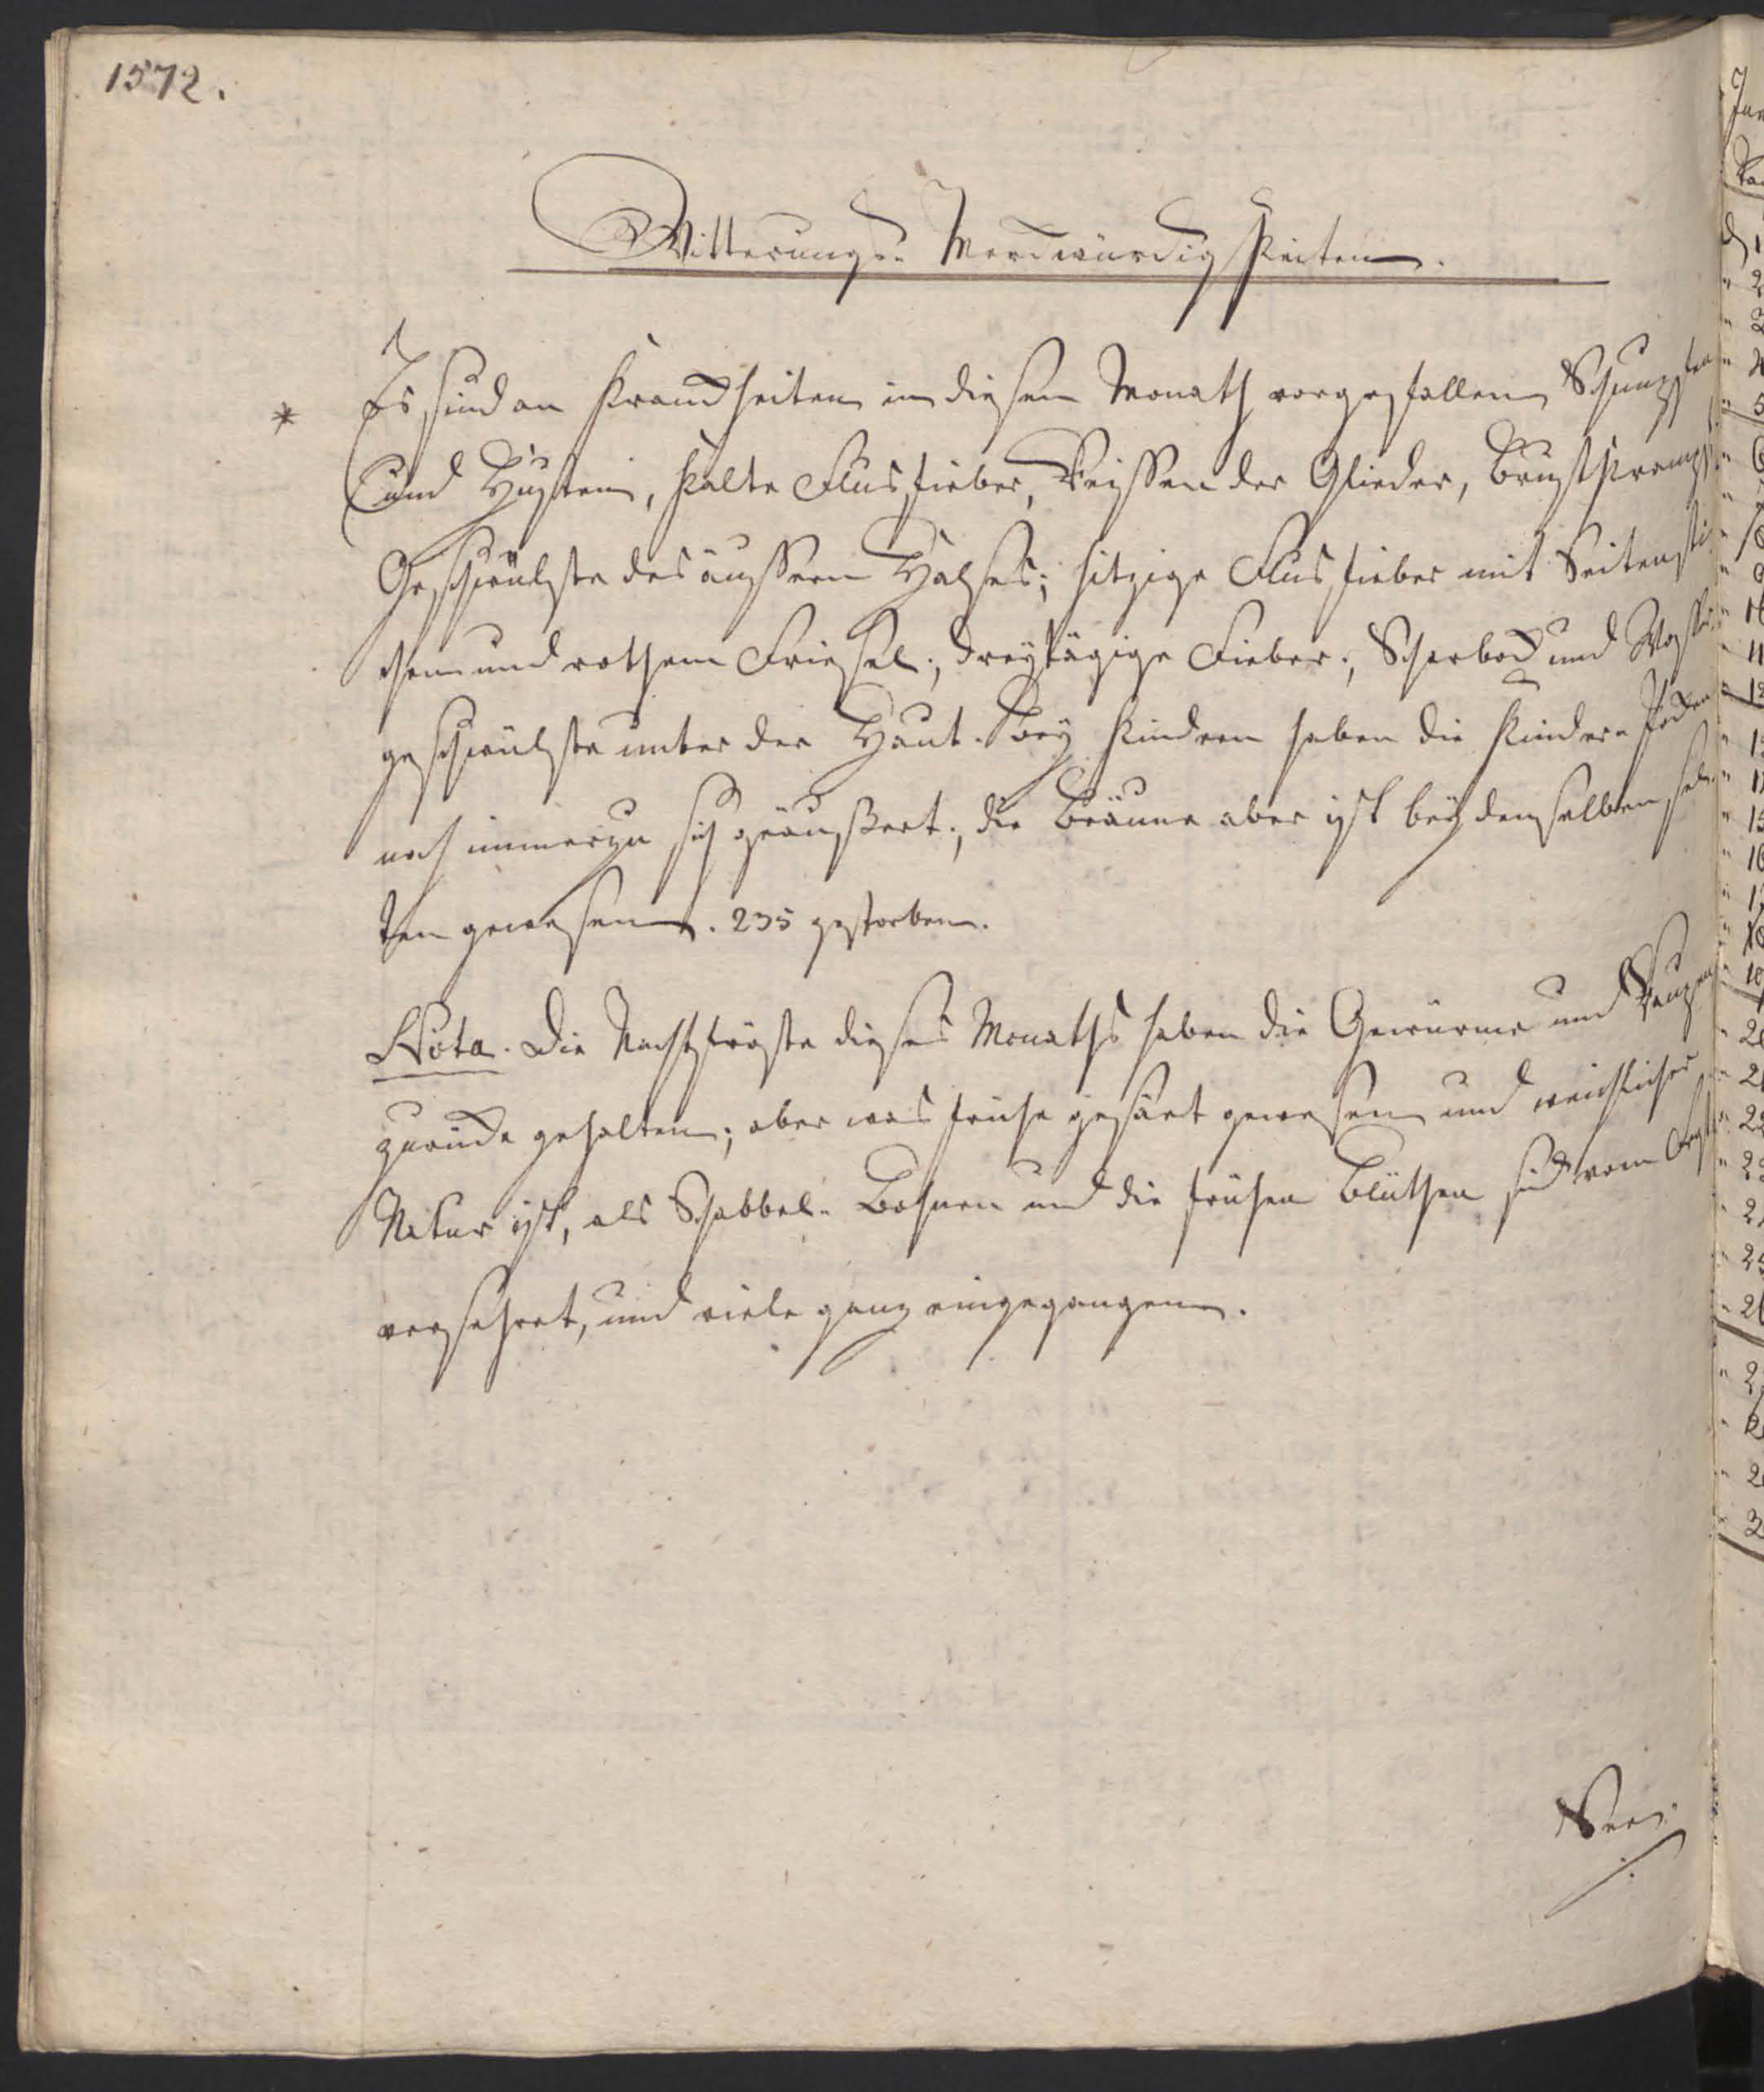 1572.
Witterungs- Merckwürdigkeiten.
* Es sind an Kranckheiten in diesem Monath vorgefallen Schnupfen
und Husten, kalte Flusfieber, Reissen der Glieder, Brustkrampf
Geschwulste des äussern Halses; hitzige Flusfieber mit Seitensti-
chen und rothem Friesel; dreytägige Fieber; Scharbock und Wasser-
geschwulste unter der Haut. Bey Kindern haben die Kinder-
noch immerzu sich geäußert; die Bräune aber ist bey denselben sel-
ten gewesen. 235 gestorben.
Nota. Die Nachtfröste dieses Monaths haben die Gewürme und Raupen
zurücke gehalten; aber was frühe gesäet gewesen und weichlicher
Natur ist, als Schabbel-Bohnen und die frühen Blüthen sind vom Frost
versehret, und viele ganz eingegangen.